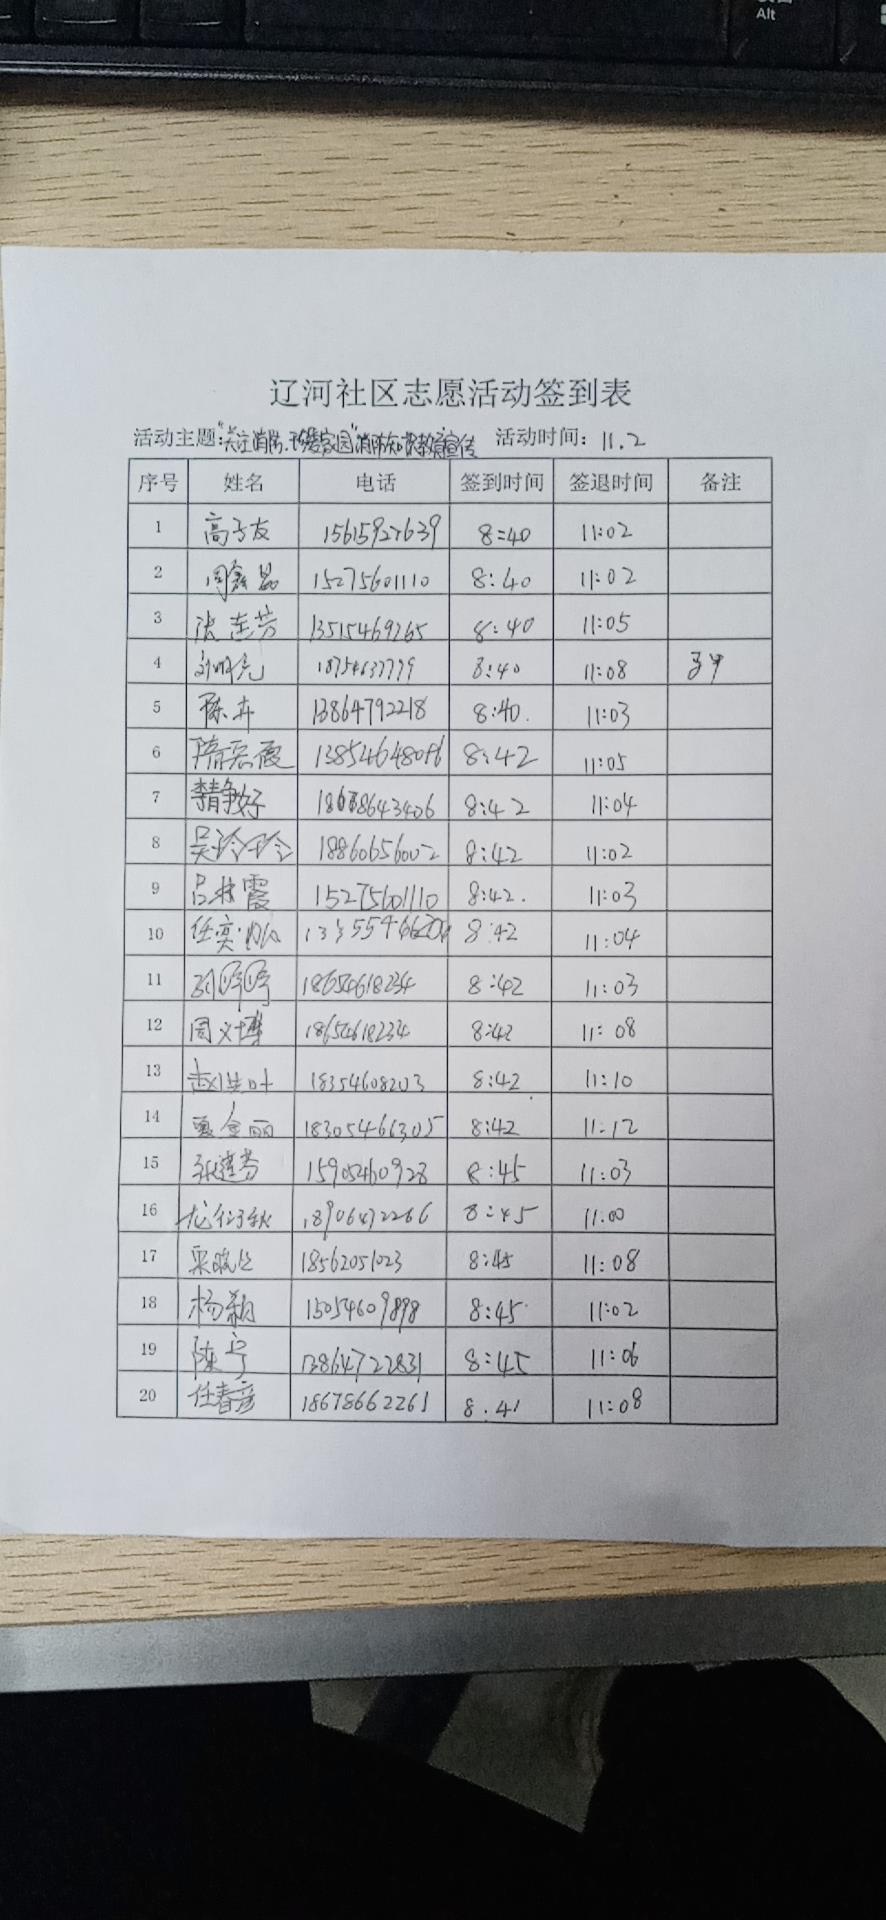 Alt
辽河社区志愿活动签到表
活动主题:"关注消防、珍爱家园"消防知识教育宣传 活动时间: 11.2
序号 姓名 电话 签到时间 签退时间 备注
1 高子友 15615927639 8:40 11:02
2 周 15275601110 8:40 11:02
3 张莲芳 13515469265 8:40 11:05
4 刘明亮 18754637779 8:40 11:08
5 陈卉 13864792218 8:40. 11:03
6 隋彩霞 8:42 11:05
7 李静好 8:42 11:04
8 吴玲玲 18860656002 8:42 11:02
9 吕梅霞 15275601110 8:42. 11:03
10 任奕 8:42 11:04
11 孙婷婷 18654618234 8:42 11:03
12 周文博 18654618234 8:42 11:08
13 赵 18354608203 8:42 11:10
14 夏金丽 18305466305 8:42 11:12
15 张建芳 15905460928 8:45 11:03
16 18906472266 8:45 11:00
17 18562051023 8:45 11:08
18 杨颖 15054609898 8:45 11:02
19 陈宁 13864722831 8:45 11:06
20 任春彦 18678662261 8.41 11:08